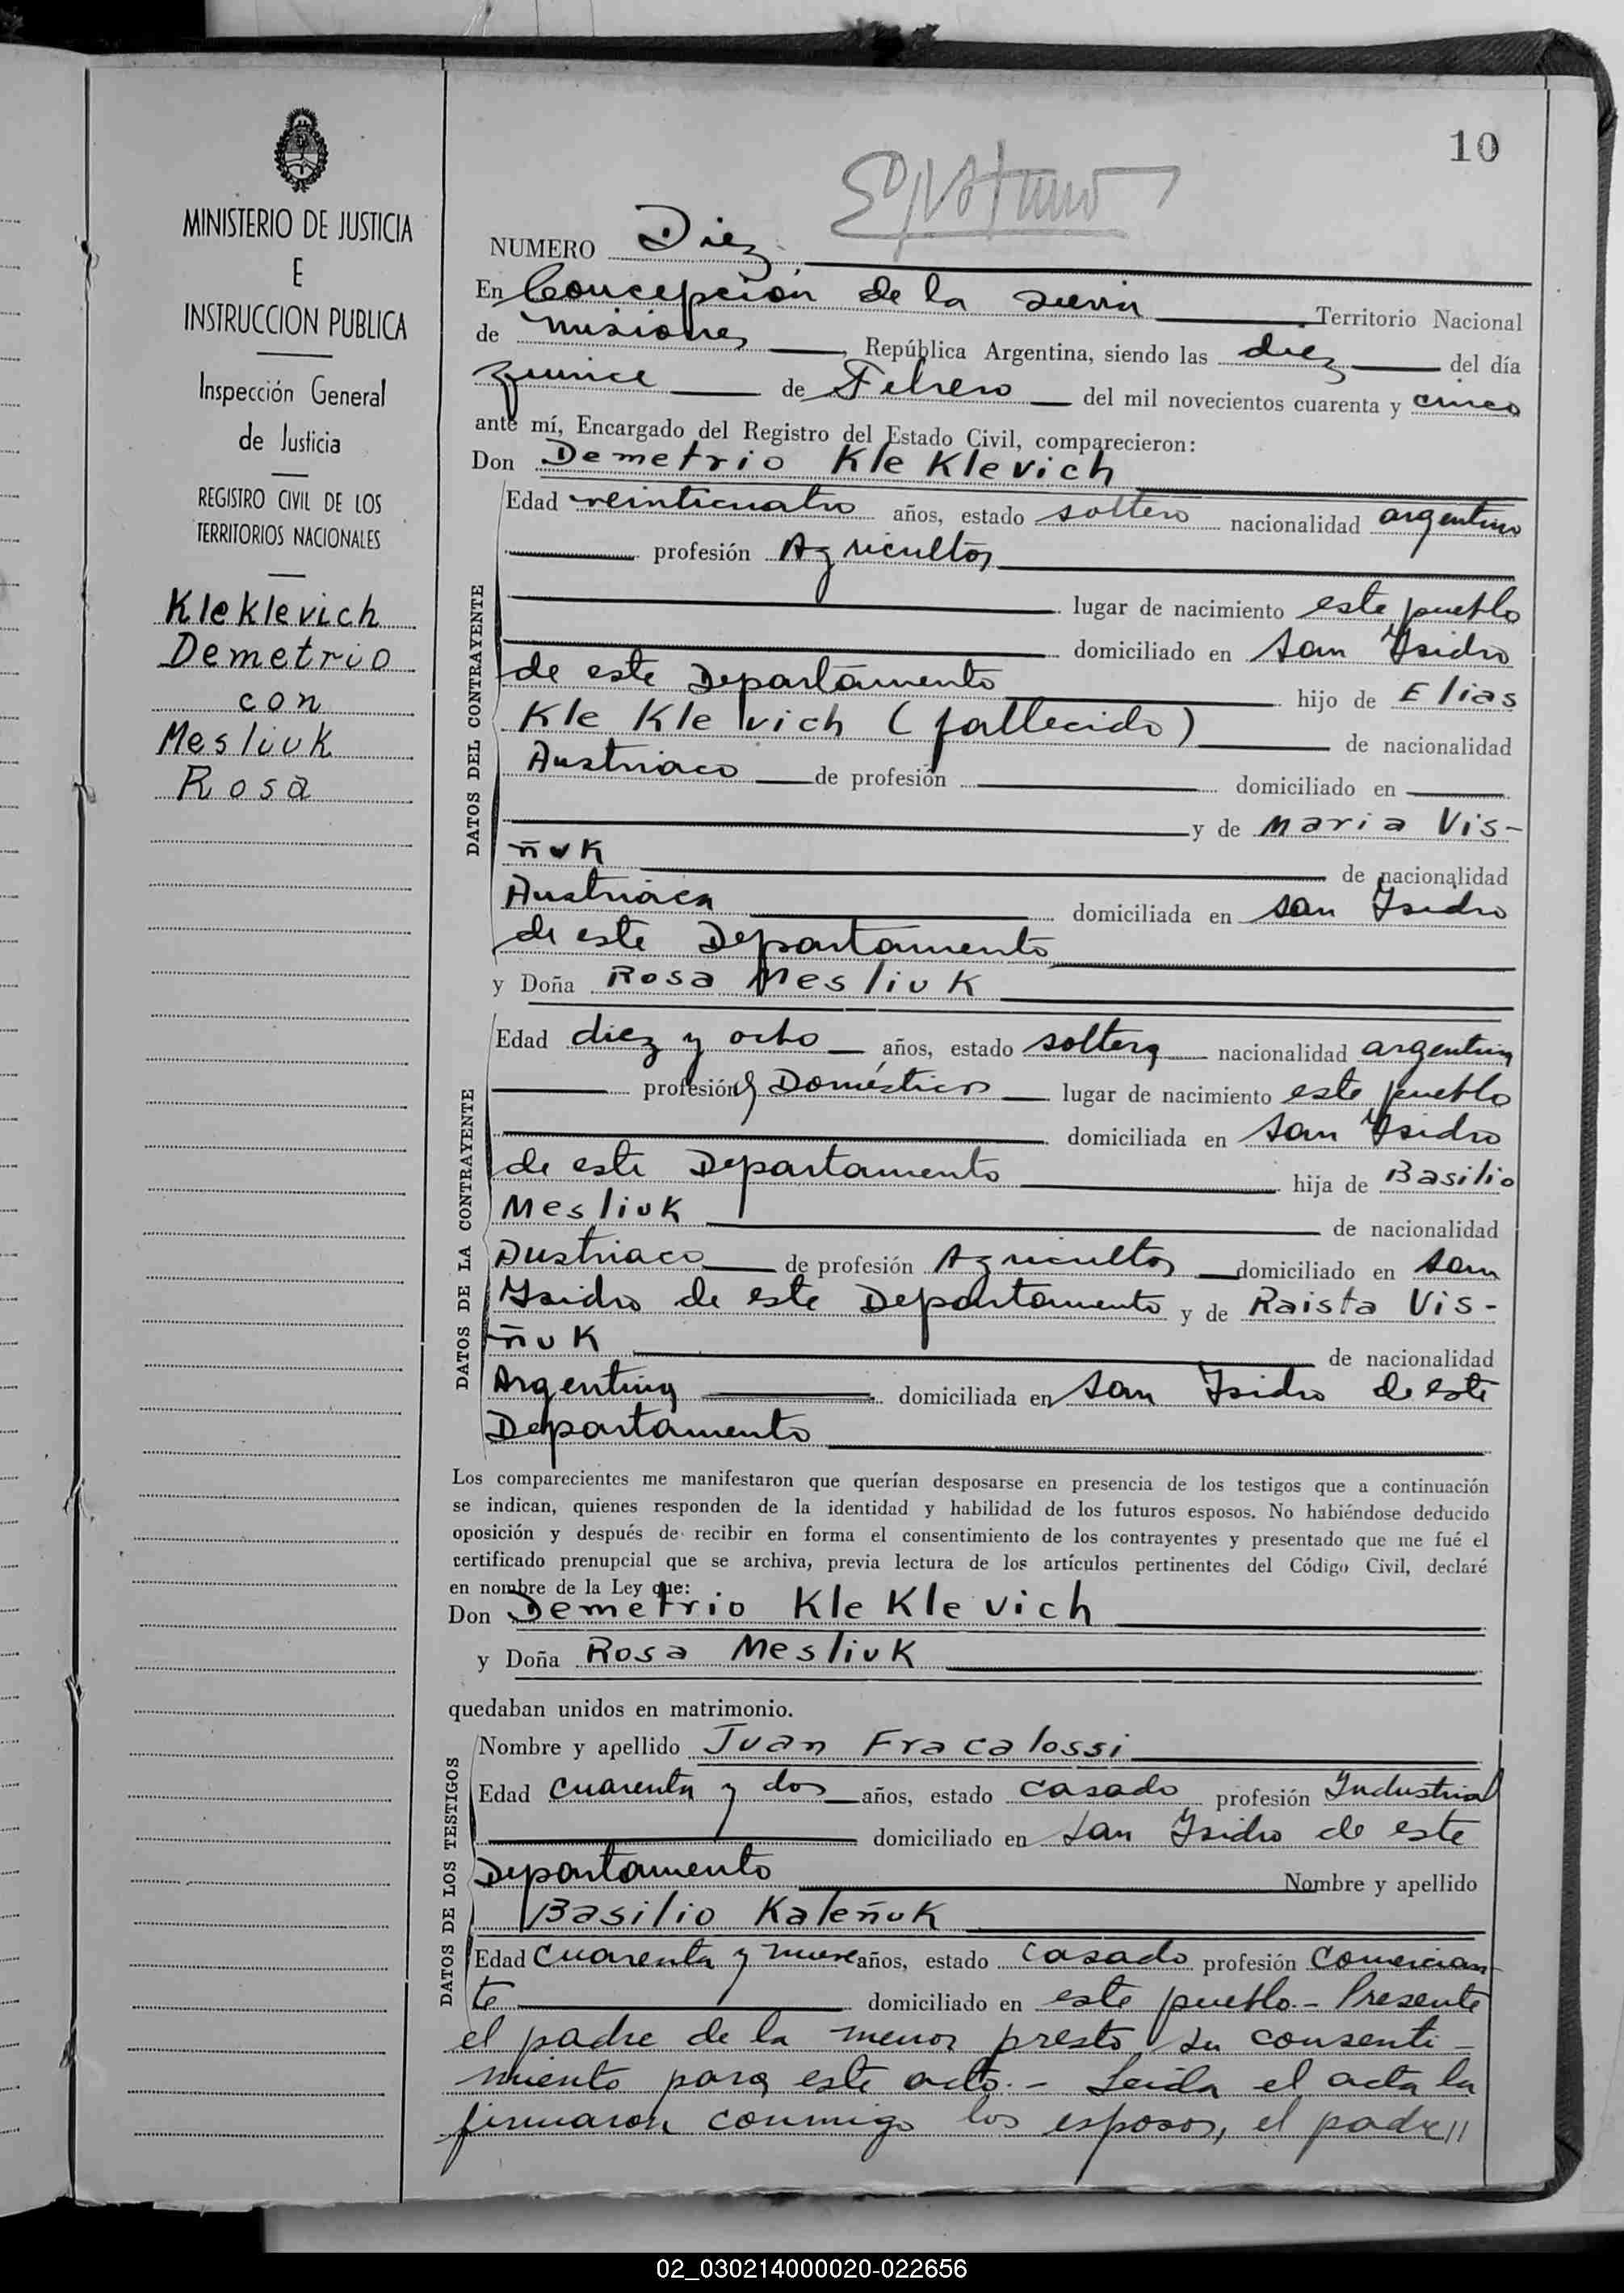 10
MINISTERIO DE JUSTICIA
E
INSTRUCCION PUBLICA
Inspección General
de Justicia
REGISTRO CIVIL DE LOS
TERRITORIOS NACIONALES
Kleklevich
Demetrio
con
Mesliuk
Rosa
NUMERO Diez
En Concepción de la Sierra Territorio Nacional
de Misiones República Argentina, siendo las diez del día
quince de Febrero del mil novecientos cuarenta y cinco
ante mí, Encargado del Registro del Estado Civil, comparecieron:
Don Demetrio Kleklevich
DATOS DEL CONTRAYENTE
Edad veinticuatro años, estado soltero nacionalidad argentino
profesión Agricultor
lugar de nacimiento este pueblo
domiciliado en San Ysidro
de este Departamento hijo de Elias
Kleklevich (fallecido) de nacionalidad
Austriaco de profesión domiciliado en
y de Maria Vis-
ñuk de nacionalidad
Austriaca domiciliada en San Ysidro
de este Departamento
y Doña Rosa Mesliuk
DATOS DE LA CONTRAYENTE
Edad diez y ocho años, estado soltera nacionalidad argentina
profesión Q Domésticos lugar de nacimiento este pueblo
domiciliada en San Ysidro
de este Departamento hija de Basilio
Mesliuk de nacionalidad
Austriaco de profesión Agricultor domiciliado en San
Ysidro de este Departamento y de Raista Vis-
ñuk de nacionalidad
Argentina domiciliada en San Ysidro de este
Departamento
Los comparecientes me manifestaron que querían desposarse en presencia de los testigos que a continuación
se indican, quienes responden de la identidad y habilidad de los futuros esposos. No habiéndose deducido
oposición y después de recibir en forma el consentimiento de los contrayentes y presentado que me fué el
certificado prenupcial que se archiva, previa lectura de los artículos pertinentes del Código Civil, declaré
en nombre de la Ley que:
Don Demetrio Kleklevich
y Doña Rosa Mesliuk
quedaban unidos en matrimonio.
DATOS DE LOS TESTIGOS
Nombre y apellido Juan Fracalossi
Edad cuarenta y dos años, estado casado profesión Industrial
domiciliado en San Ysidro de este
Departamento Nombre y apellido
Basilio Kateñuk
Edad cuarenta y nueve años, estado casado profesión Comercian-
te domiciliado en este pueblo.- Presente
el padre de la menor presto su consenti-
miento para este acto.- Leida el acta la
firmaron conmigo los esposos, el padre//
02_030214000020-022656